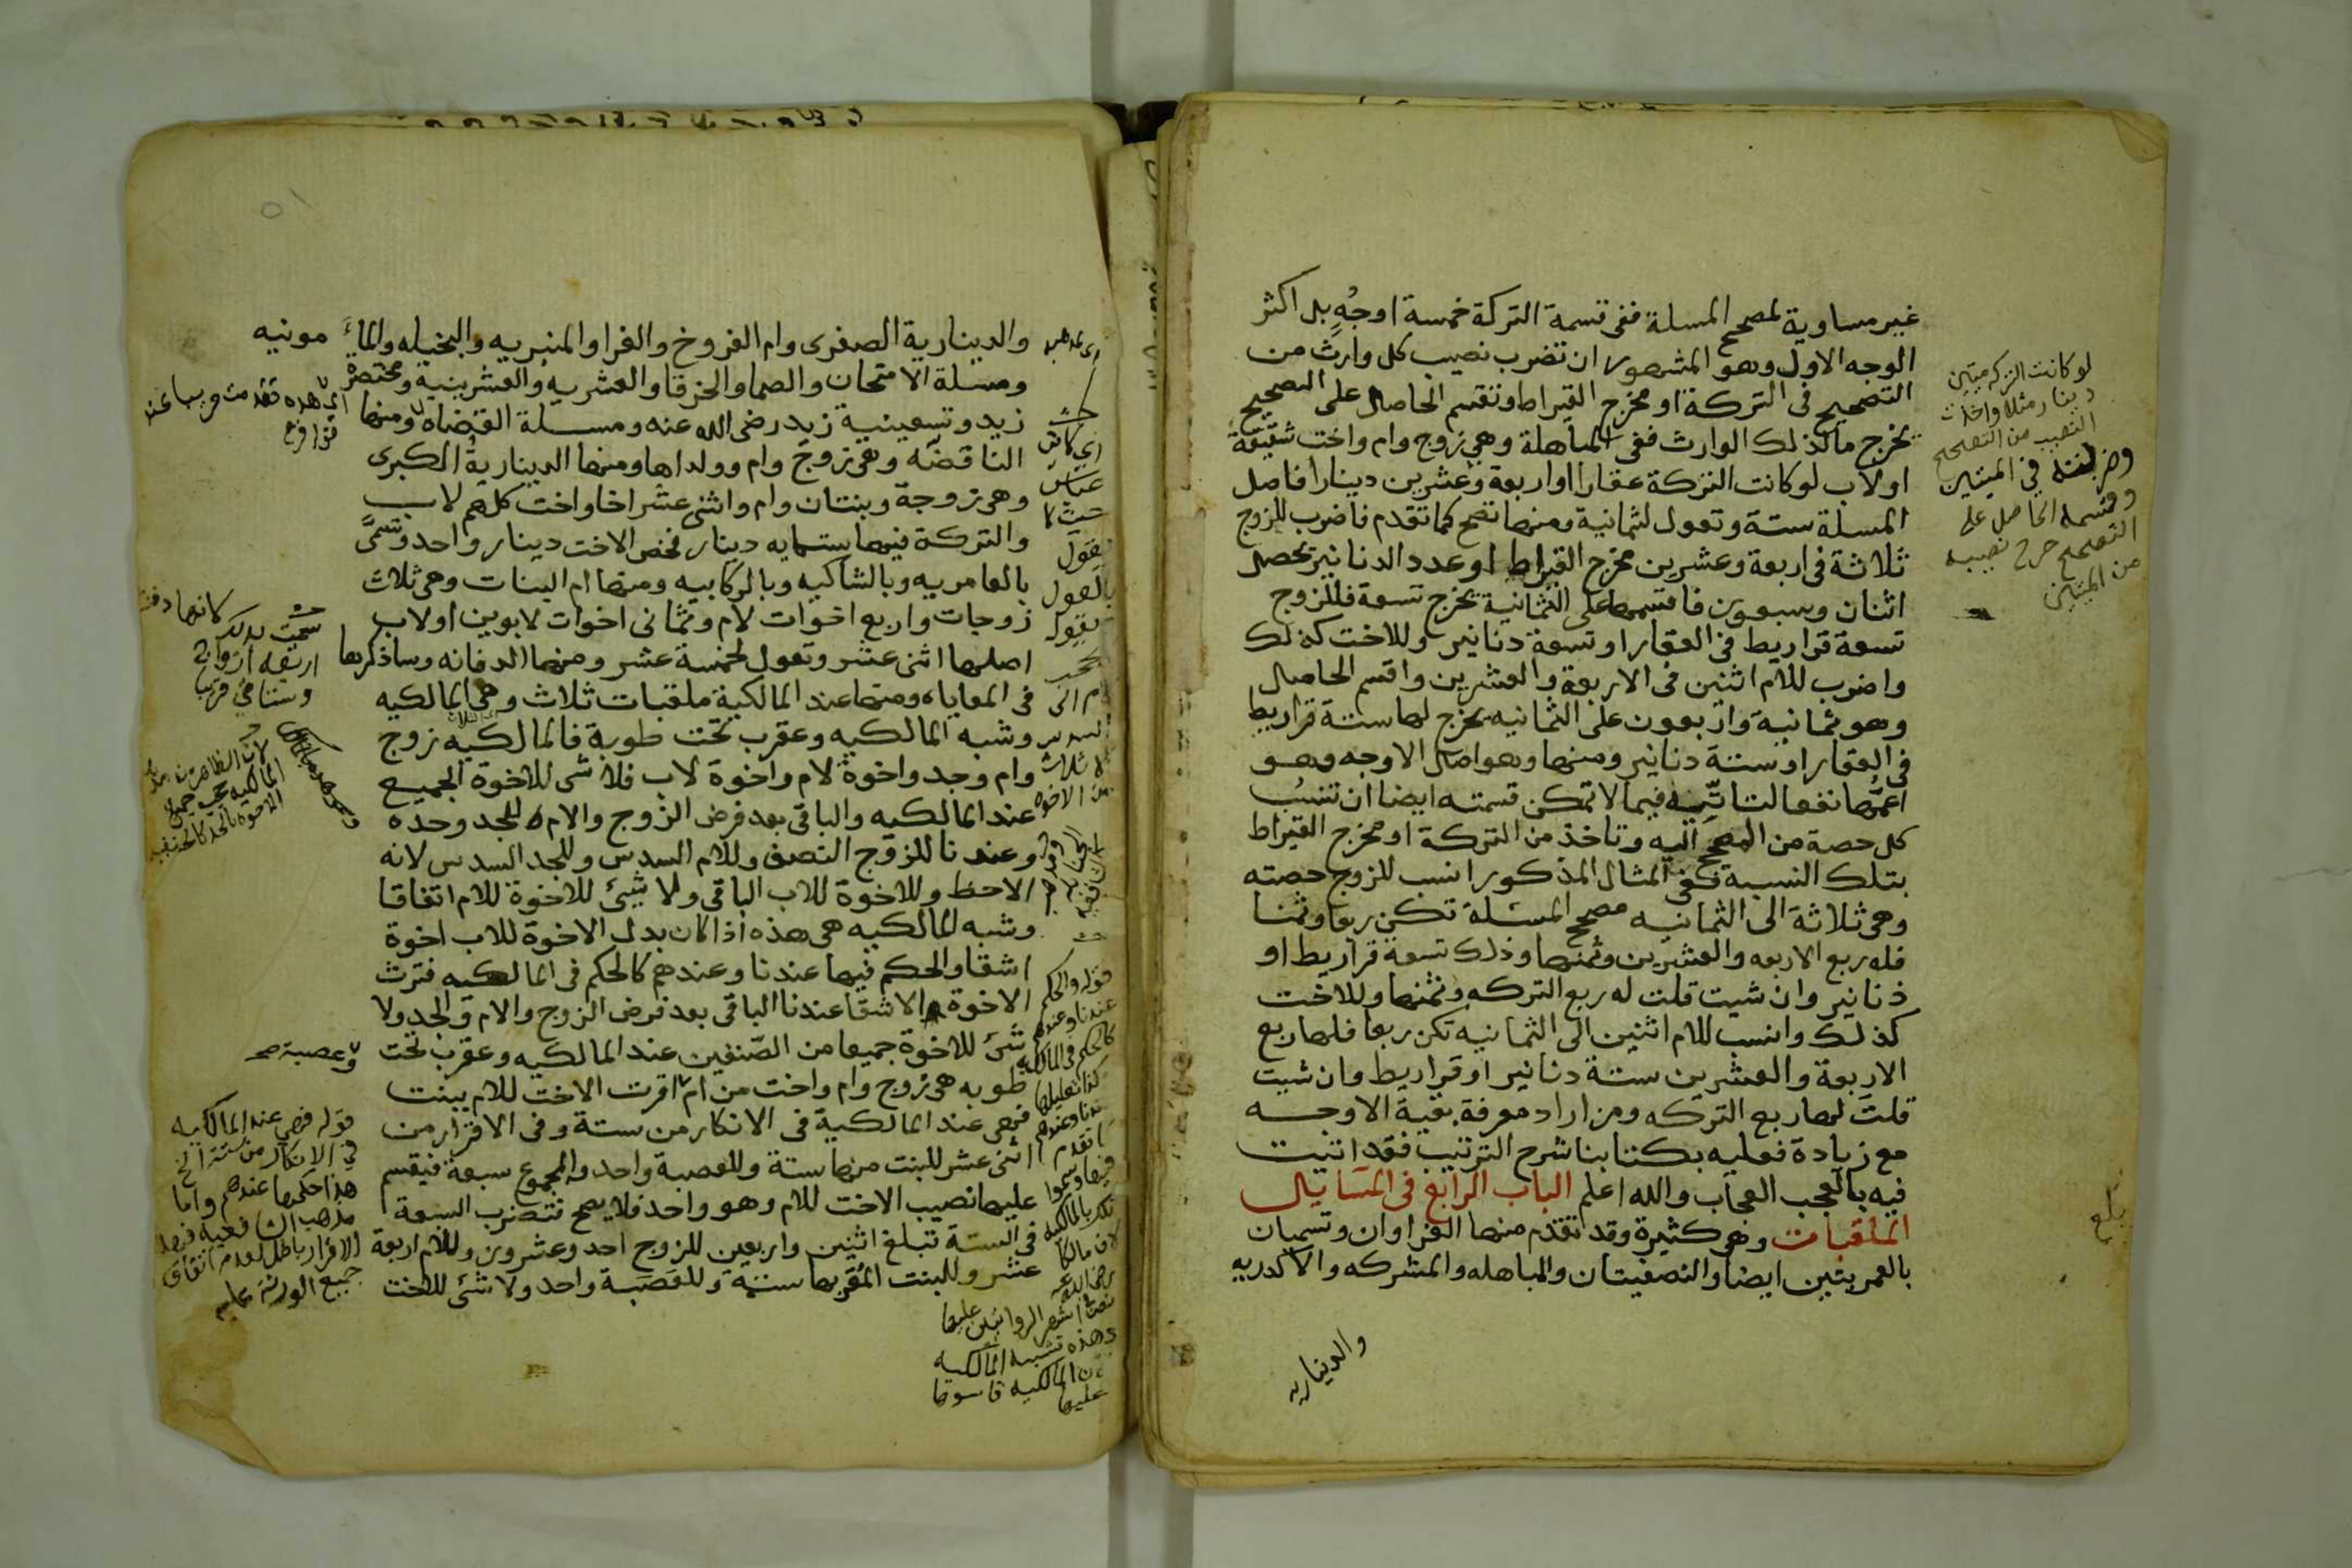 غير مساوية لمصحح المسلة ففي قسمة التركة خمسة اوجهٍ بل اكثر
الوجه الاول وهو المشهور ان تضرب نصيب كل وارث من
التصحيح في التركة او مخرج القيراط وتقسم الحاصل على التصحيح
يخرج ما لذلك الوارث ففي المباهلة وهي زوج وام واخت شقيقة
اولاب لو كانت التركة عقارا او اربعة وعشرين دينارا فاصل
المسلة ستة وتعول لثمانية ومنها تصح كما تقدم فاضرب للزوج
ثلاثة في اربعة وعشرين مخرج القيراط او عدد الدنانير يحصل
اثنان وسبعون فاقسمها على الثمانية يخرج تسعة فللزوج
تسعة قراريط في العقار او تسعة دنانير وللاخت كذلك
واضرب للام اثنين في الاربعة والعشرين واقسم الحاصل
وهو ثمانية واربعون على الثمانيه يخرج لها ستة قراريط
في العقار او ستة دنانير ومنها وهو اصل الاوجه وهو
اعمها نفعا لتاتيه فيما لا تمكن قسمته ايضا ان تنسب
كل حصة من المصحح اليه وتاخذ من التركة او مخرج القيراط
بتلك النسبة ففي المثال المذكور انسب للزوج حصته
وهي ثلاثة الى الثمانيه مصحح المسئلة تكن ربعا وثمنا
فله ربع الاربعه والعشرين وثمنها وذلك تسعة قراريط او
دنانير وان شيت قلت له ربع التركه وثمنها وللاخت
كذلك وانسب للام اثنين الى الثمانيه تكن ربعا فلها ربع
الاربعة والعشرين ستة دنانير او قراريط وان شيت
قلت لها ربع التركه ومن اراد معرفة بقية الاوجه
مع زيادة فعليه بكتابنا شرح الترتيب فقد اتيت
فيه بالعجب العجاب والله اعلم الباب الرابع في المسايل
الملقبات وهي كثيرة وقد تقدم منها الغراوان وتسميان
بالعمريتين ايضا والنصفيتان والمباهله والمشركه والاكدريه
والديناريه
لو كانت التركه ميتين
دينار مثلا واخذت
النصيب من التصحيح
وضربته في الميتين
وقسمت الحاصل على
التصحيح خرج نصيبه
من الميتين
بلغ
والدينارية الصغرى وام الفروخ والغرا والمنبريه والبخيله والمامونيه
ومسئلة الامتحان والصما والخرقا والعشريه والعشرينية ومختصرة
زيد وتسعينية زيد رضي الله عنه ومسلة القضاه ومنها
الناقضة وهي زوج وام وولداها ومنها الدينارية الكبرى
وهي زوجة وبنتان وام واثنى عشر اخا واخت كلهم لاب
والتركة فيها ستمايه دينار فخص الاخت دينار واحد وتسمى
بالعامريه وبالشاكيه وبالركابيه ومنها ام البنات وهي ثلاث
زوجات واربع اخوات لام وثماني اخوات لابوين اولاب
اصلها اثنى عشر وتعول لخمسة عشر ومنها الدفانه وساذكرها
في المعاياه ومنها عند المالكية ملقبات ثلاث وهي المالكيه
وشبه المالكيه وعقرب تحت طوبة فالمالكيه زوج
وام وجد واخوة لام واخوة لاب فلا شى للاخوة الجميع
عند المالكيه والباقي بعد فرض الزوج والام للجد وحده
وعندنا للزوج النصف وللام السدس وللجد السدس لانه
الاحظ وللاخوة للاب الباقي ولا شيئ للاخوة للام اتفاقا
وشبه المالكيه هي هذه اذا كان بدل الاخوة للاب اخوة
اشقا والحكم فيها عندنا وعندهم كالحكم في المالكيه فترث
الاخوة الاشقا عندنا الباقي بعد فرض الزوج والام والجد ولا
شئ للاخوة جميعا من الصنفين عند المالكيه وعقرب تحت
طوبه هي زوج وام واخت من ام اقرت الاخت للام ببنت
فهي عند المالكية في الانكار من ستة وفي الاقرار من
اثنى عشر للبنت منها ستة وللعصبة واحد والمجموع سبعة فيقسم
عليها نصيب الاخت للام وهو واحد فلا يصح فتضرب السبعة
في الستة تبلغ اثنين واربعين للزوج احد وعشرون وللام اربعة
عشر وللبنت المقر بها ستة وللعصبة واحد ولا شئ للاخت
وعصبة صح
اي هذه تقدمت قريبا عند
سميت بذلك كانها دفنت
اربعة ازواج
وستاتي قريبا
لان الظاهر من
المالكيه يحجب جميع
الاخوة بالجد كالحنفيه
قوله فهي عند المالكيه
في الانكار من ستة الخ
هذا حكمها عندهم واما
مذهب الشافعية فهذا
الاقرار باطل لعدم اتفاق
جميع الورثة عليه
قوله والحكم
عندنا وعندهم
كالحكم في المالكيه
لان مالكا
رضي الله عنه
وهذه تشبه المالكيه
عليها